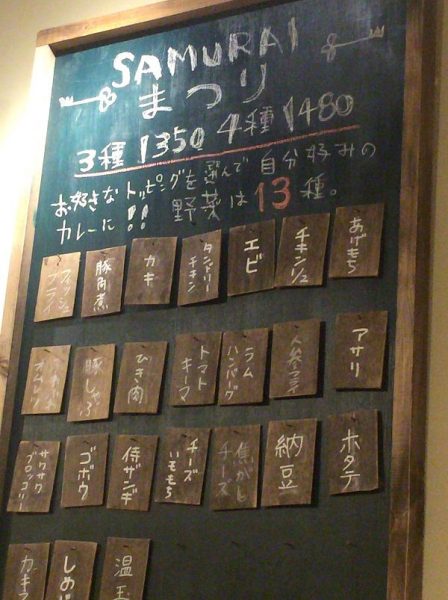 SAMURAI
まつり
3種 1350 4種 1480
お好きなトッピングを選んで自分好みの
カレーに!! 野菜は13種。
フィッシュフライ
豚角煮
カキ
タンドリーチキン
エビ
あげもち
豚しゃぶ
ひき肉
トマトキーマ
ラムハンバーグ
アサリ
サクサクブロッコリー
ゴボウ
侍ザンギ
チーズいももち
焦がしチーズ
納豆
ホタテ
温玉